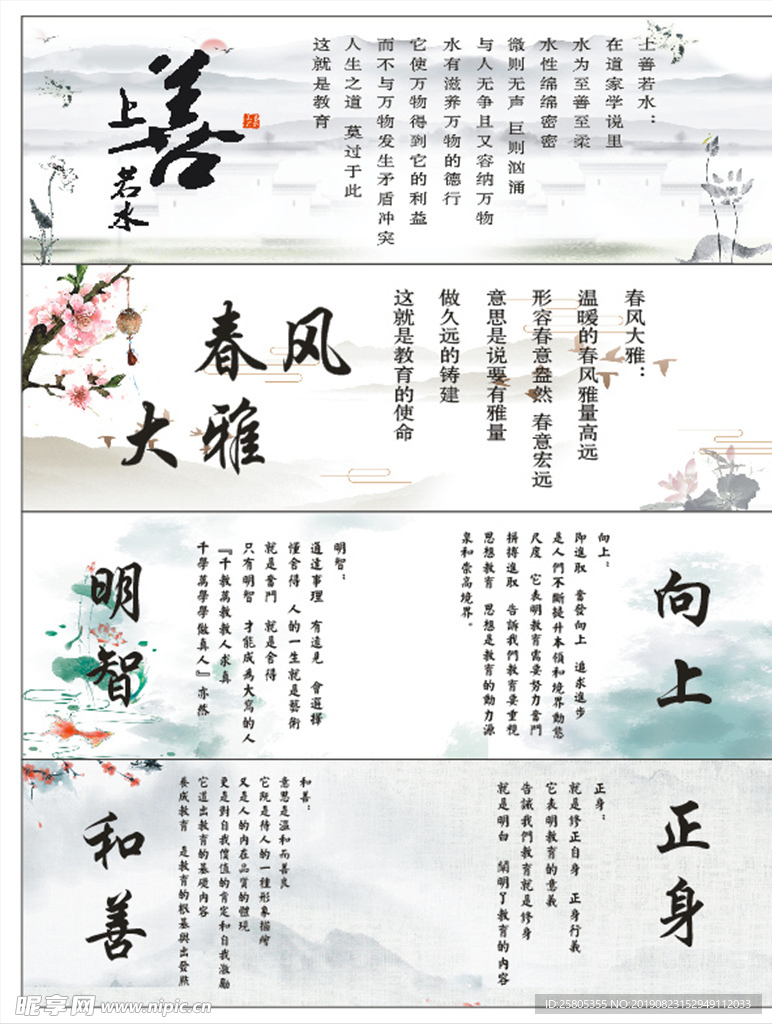 上善
若水
上善若水：
在道家学说里
水为至善至柔
水性绵绵密密
微则无声 巨则汹涌
与人无争且又容纳万物
水有滋养万物的德行
它使万物得到它的利益
而不与万物发生矛盾冲突
人生之道 莫过于此
这就是教育
春风
大雅
春风大雅：
温暖的春风雅量高远
形容春意盎然 春意宏远
意思是说要有雅量
做久远的铸建
这就是教育的使命
明智
明智：
通達事理 有遠見 會選擇
懂舍得 人的一生就是藝術
就是奮鬥 就是舍得
只有明智 才能成為大寫的人
『千教萬教教人求真
千學萬學學做真人』亦然
向上
向上：
即進取 奮發向上 追求進步
是人們不斷提升本領和境界動態
尺度 它表明教育需要努力奮鬥
拼搏進取 告訴我們教育要重視
思想教育 思想是教育的動力源
泉和崇高境界。
和善
和善：
意思是溫和而善良
它既是待人的一種形象描繪
又是人的內在品質的體現
更是對自我價值的肯定和自我激勵
它道出教育的基礎內容
養成教育 是教育的根基與出發點
正身
正身：
就是修正自身 正身行義
它表明教育的意義
告誡我們教育就是修身
就是明白 闡明了教育的內容
昵享网 www.nipic.cn
ID:25805355 NO:20190823152949112033